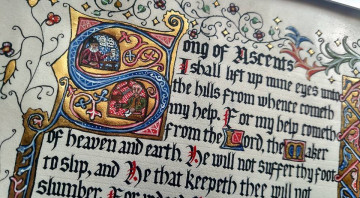 Song of Ascents
I shall lift up mine eyes unto
the hills from whence cometh
my help. For my help cometh
from the Lord, the Maker
of heaven and earth. He will not suffer thy foot
to slip, and He that keepeth thee will not
slumber.